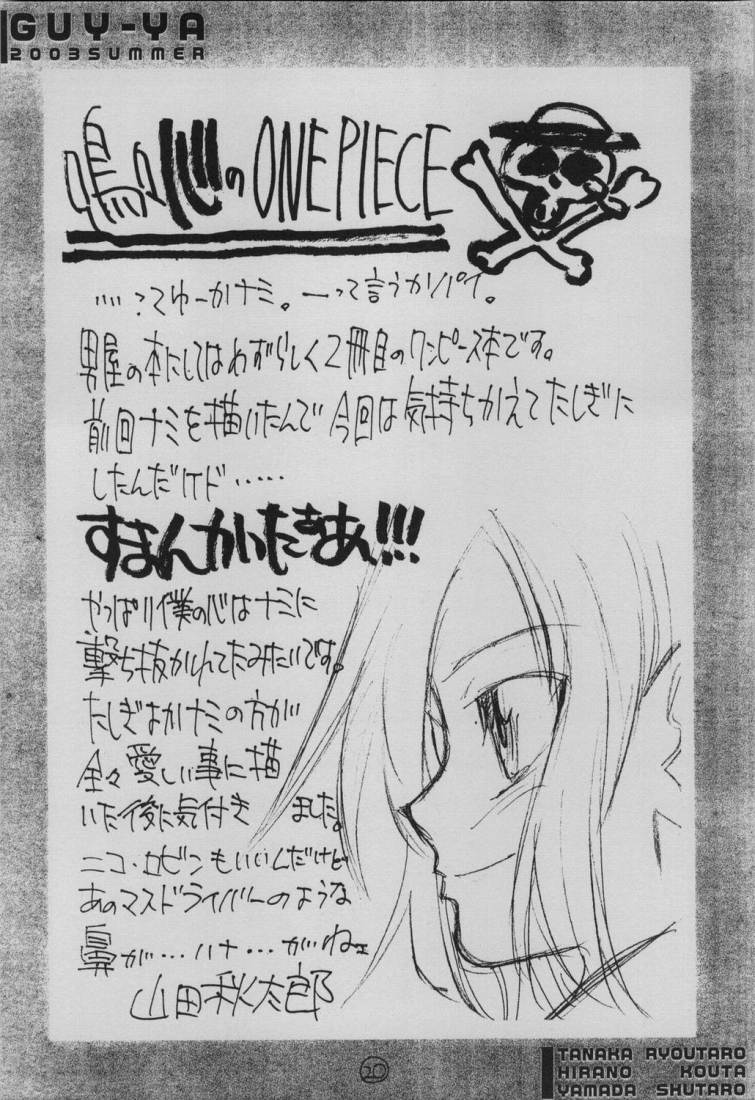 GUY-YA
2003 SUMMER
鳴心のONE PIECE
‥‥:てゆーかナミ。―って言うか
男屋の本にしてはめずらしく2冊目のワンピース本です。
前回ナミを描いたんで今回は気持ちかえてたしぎに
したんだけド……
すまん
やっぱり僕の心はナミに
撃ち抜かれてたみたいです。
たしぎよかナミの方が
全々愛しい事に描
いた後に気付き ました。
ニコ・ロビンもいいんだけど
あのマスドライバーのような
鼻が…ハナ…がねェ
山田秋太郎
20
TANAKA RYOUTARO
HIRANO KOUTA
YAMADA SHUTARO